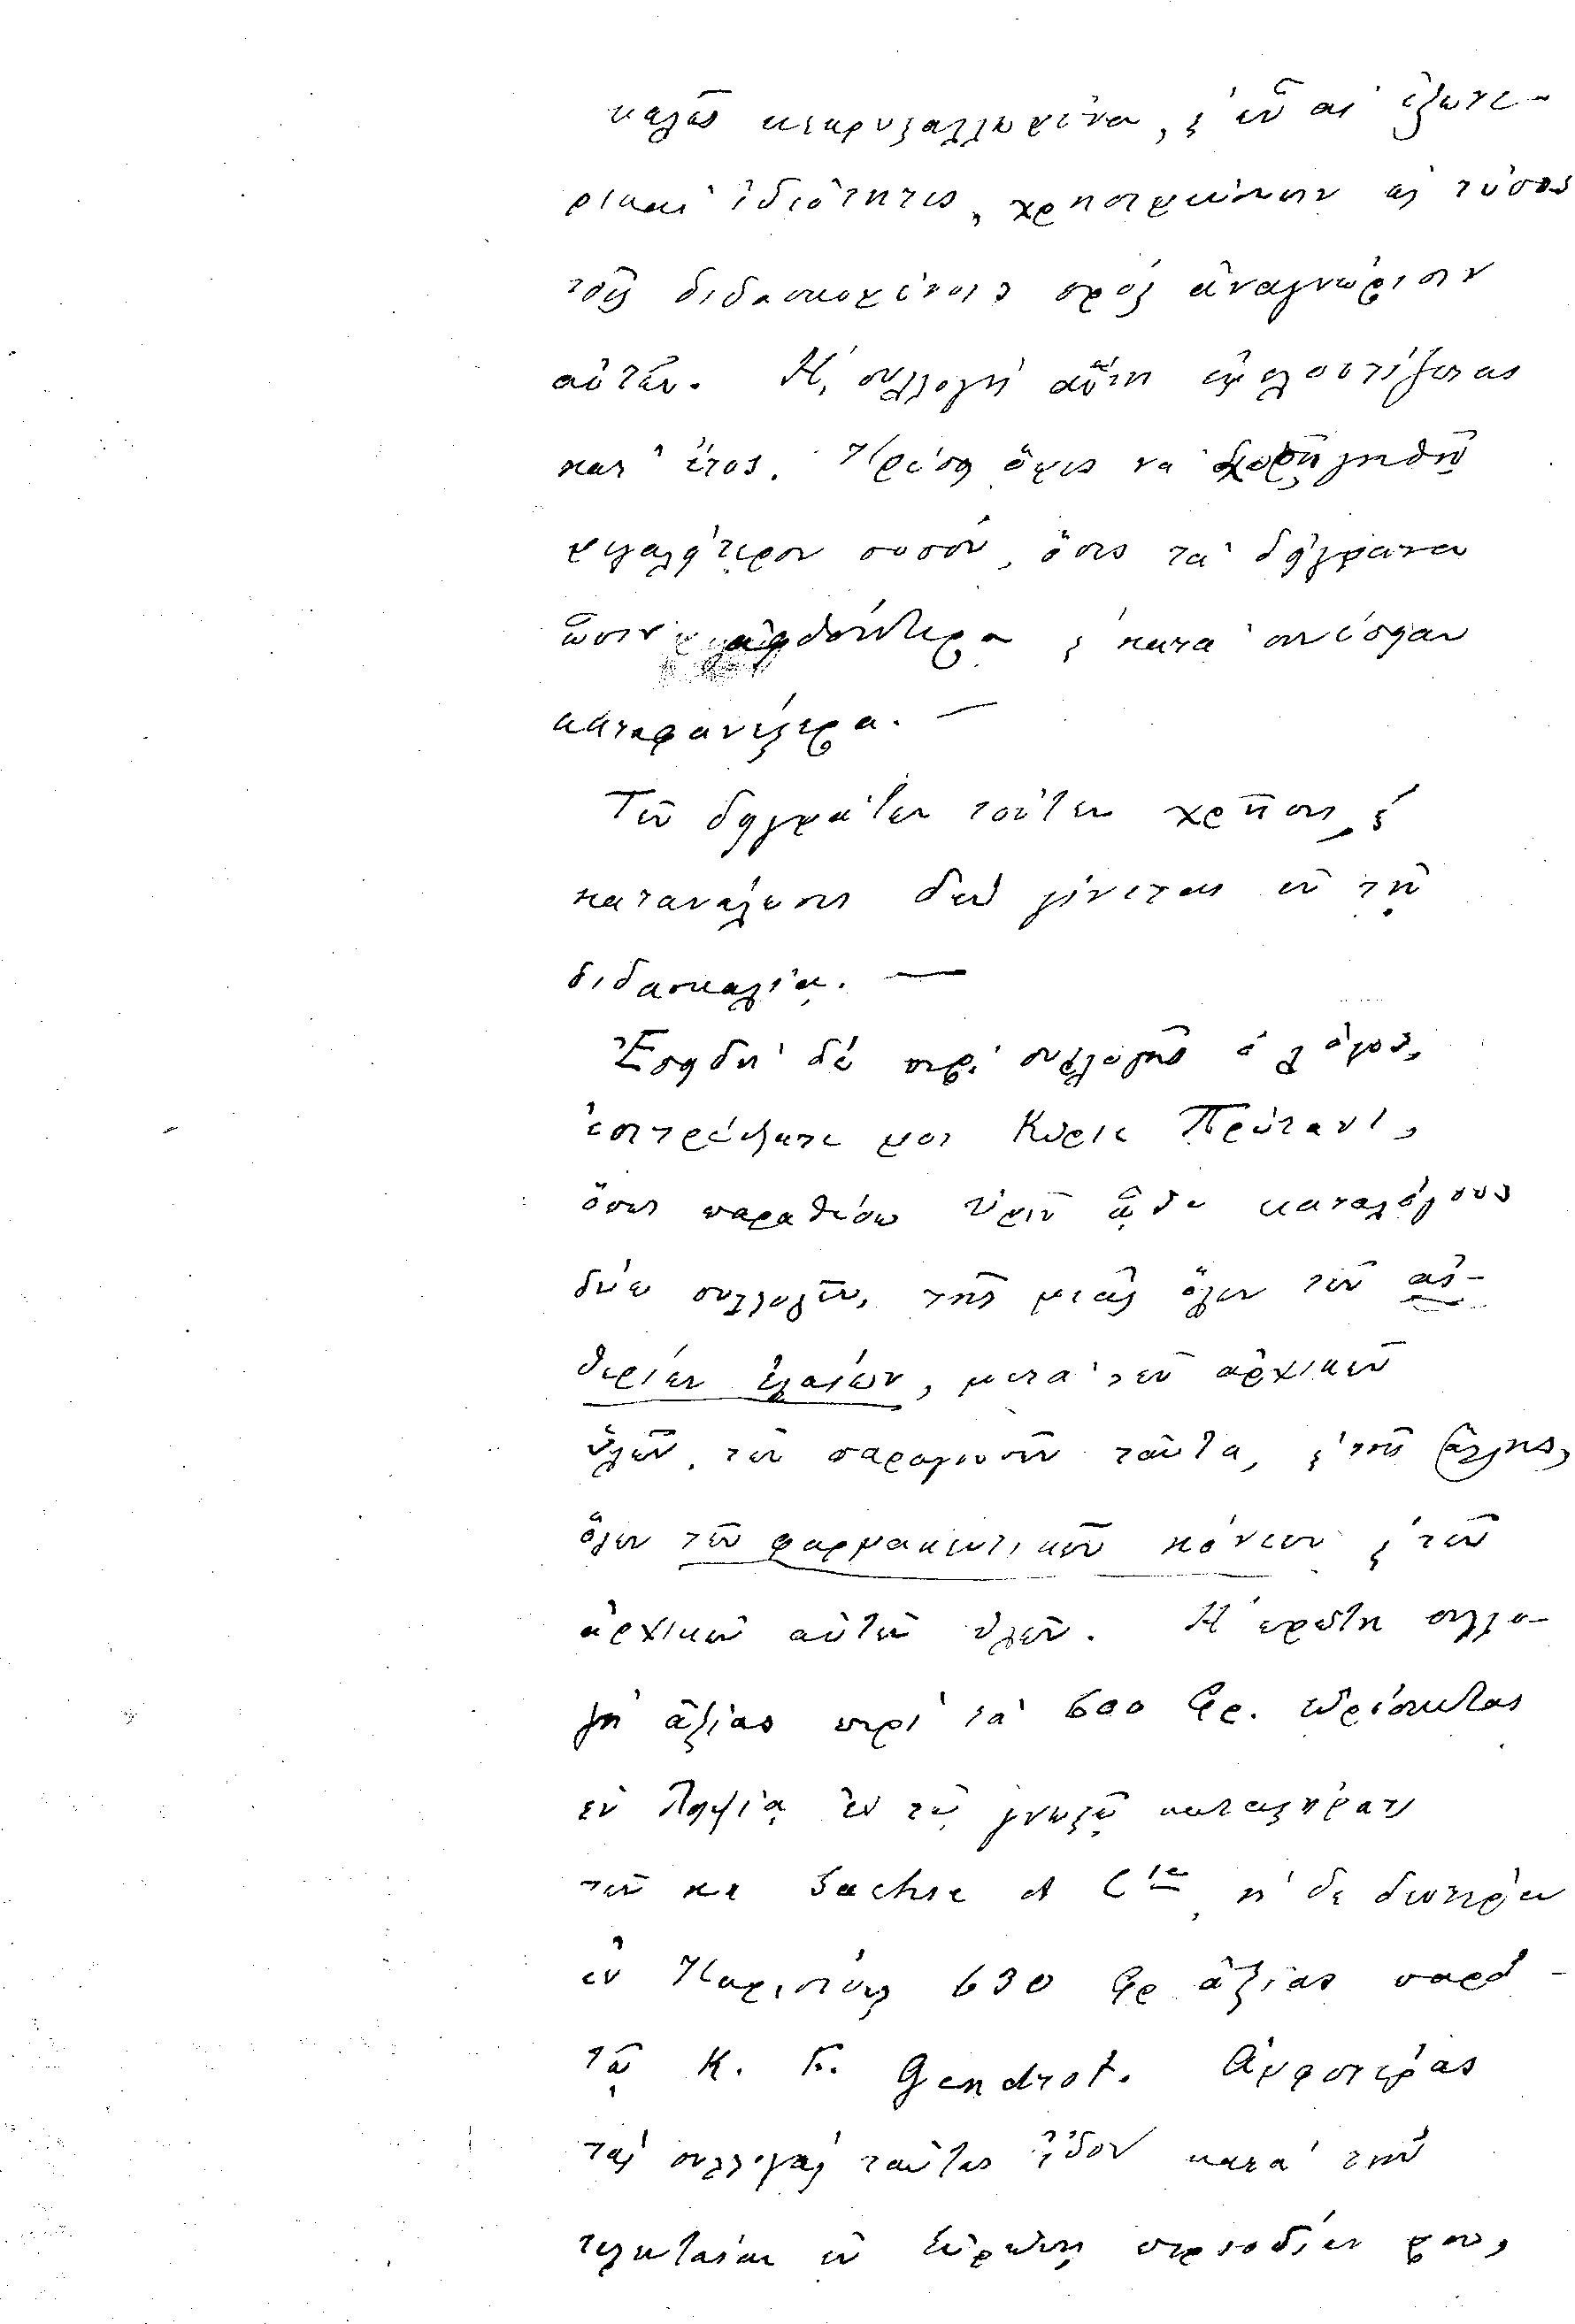 καλῶς κεκρυσταλλωμένα, ὧν αἱ ἐξωτε-
ρικαὶ ἰδιότητες, χρησιμεύουσιν ὡς τύπος
τοῖς διδασκομένοις πρὸς ἀναγνώρισιν
αὐτῶν. Ἡ συλλογὴ αὕτη ἐμπλουτίζεται
κατ' ἔτος. Πρέπει ὅμως νὰ χορηγηθῇ
μεγαλήτερον ποσόν, ὅπως τὰ δείγματα
ὦσιν ἀφθονώτερα καὶ κατὰ συνέπειαν
καταφανέστερα. —
Τῶν δειγμάτων τούτων χρῆσις καὶ
κατανάλωσις δὲν γίνεται ἐν τῇ
διδασκαλίᾳ. —
Ἐπειδὴ δὲ περὶ συλλογῆς ὁ λόγος,
ἐπιτρέψατέ μοι Κύριε Πρύτανι,
ὅπως παραθέσω ὑμῖν ὧδε καταλόγους
δύω συλλογῶν, τῆς μιᾶς ὅλων τῶν αἰ-
θερίων ἐλαίων, μετὰ τῶν ἀρχικῶν
ὑλῶν, τῶν παραγουσῶν ταῦτα, καὶ τῆς ἄλλης,
ὅλων τῶν φαρμακευτικῶν κόνεων καὶ τῶν
ἀρχικῶν αὐτῶν ὑλῶν. Ἡ πρώτη συλλο-
γὴ ἀξίας περὶ τὰ 600 φρ. εὑρίσκεται
ἐν Λειψίᾳ ἐν τῷ γνωστῷ καταστήματι
τῶν κκ Sachse et Cie, ἡ δὲ δευτέρα
ἐν Παρισίοις 630 φρ ἀξίας παρὰ
τῷ Κ. F. Gendrot. Ἀμφοτέρας
τὰς συλλογὰς ταύτας εἶδον κατὰ τὴν
τελευταίαν ἐν Εὐρώπῃ περιοδείαν μου,